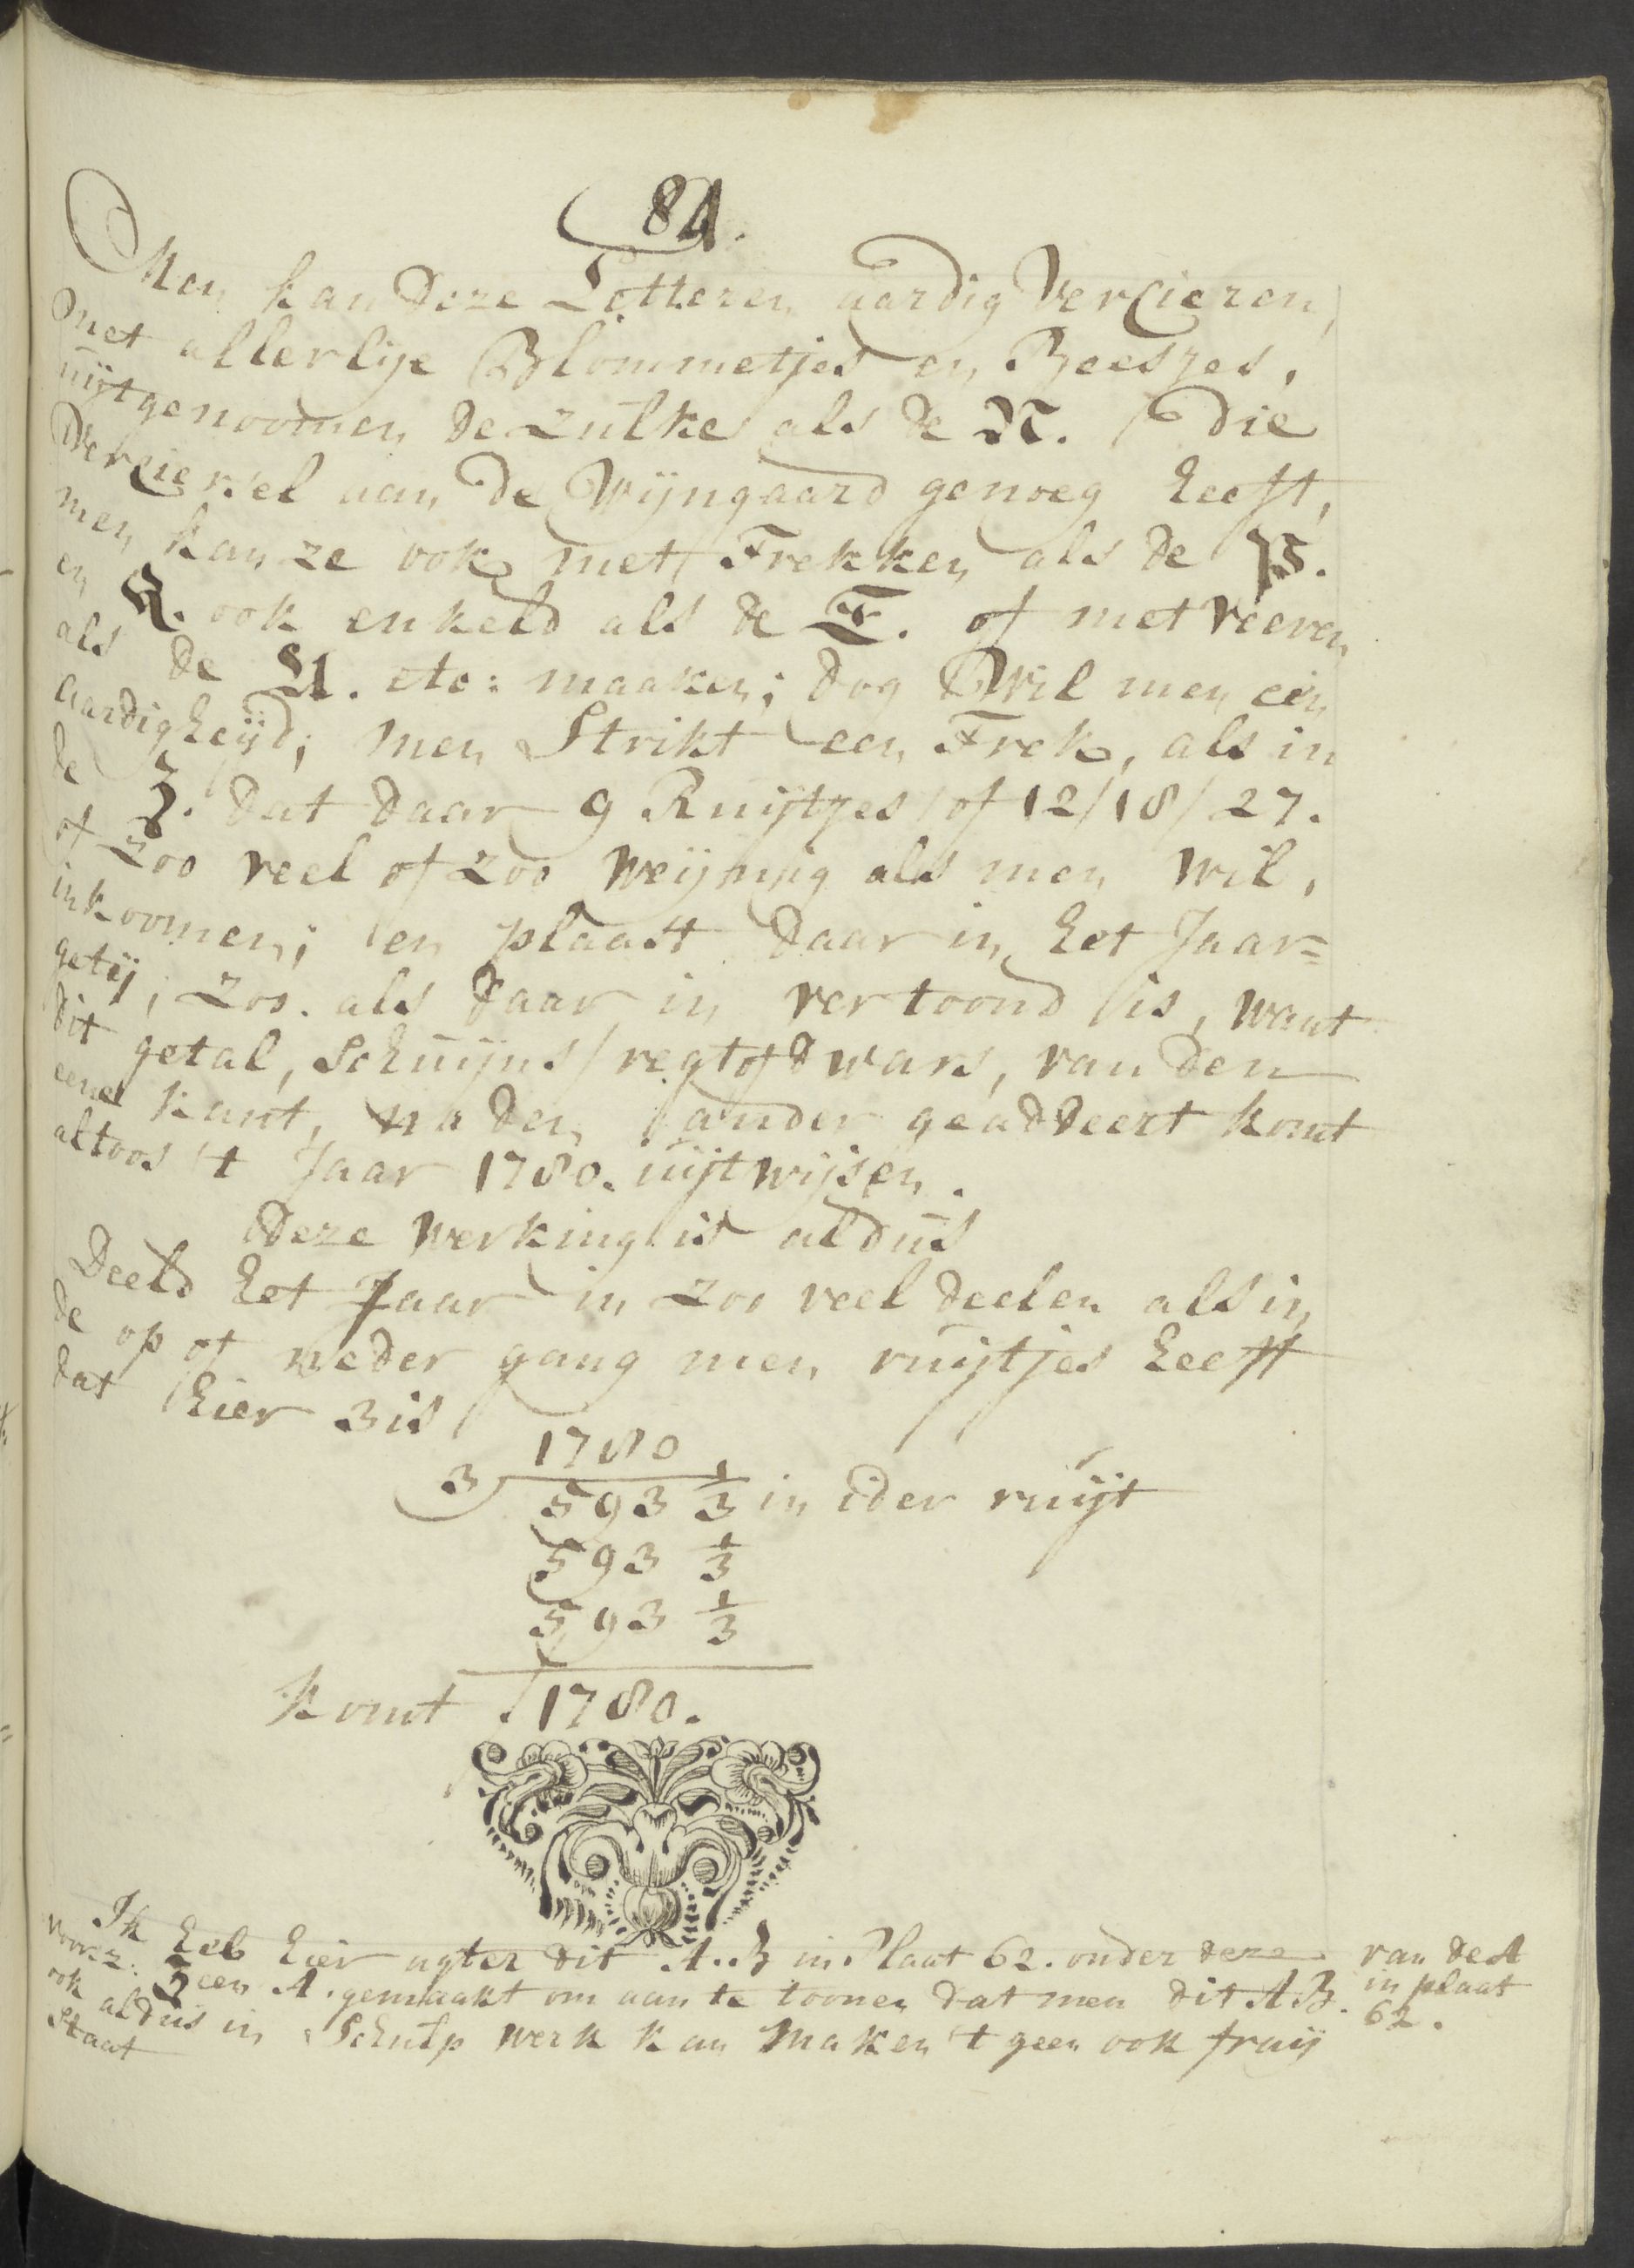 84.
Men kan deze Letteren aardig Vercieren,
met allerlije Blommetjes en Beesjes,
uijtgenoomen de zulke als de N. die
Verciersel van de Wijngaard genoeg heeft,
men kan ze ook met Trekken als de B.
en R. ook enkeld als de F. of met veeren
als de A. etc: maaken; dog Wil men een
aardigheijd; men Strikt een Trek, als in
de Z. dat daar 9 Ruijtjes / of 12 / 18 / 27.
of zoo veel of zoo weijnig als men wil,
inkoomen; en plaast daar in het Jaar=
getij; zoo. als daar in vertoond is, want
dit getal, Schuijns / regt of dwars, van den
eene kant, na den ander geaddeert komt
altoos 't Jaar 1780. uijtwijsen.
Deze werking is aldus
Deeld het Jaar in zoo veel deelen als in
de op of neder gang men ruijtjes heeft
dat hier 3 is
1780
3 593 1/3 in ider ruijt
593 1/3
593 1/3
komt 1780.
Ik heb hier agter dit A.B in Plaat 62. onder deze
voorz: Z een A. gemaakt om aan te toonen dat men dit A B.
ook aldus in Schulp werk kan maken 't geen ook fraij
staat
van de A
in plaat
62.